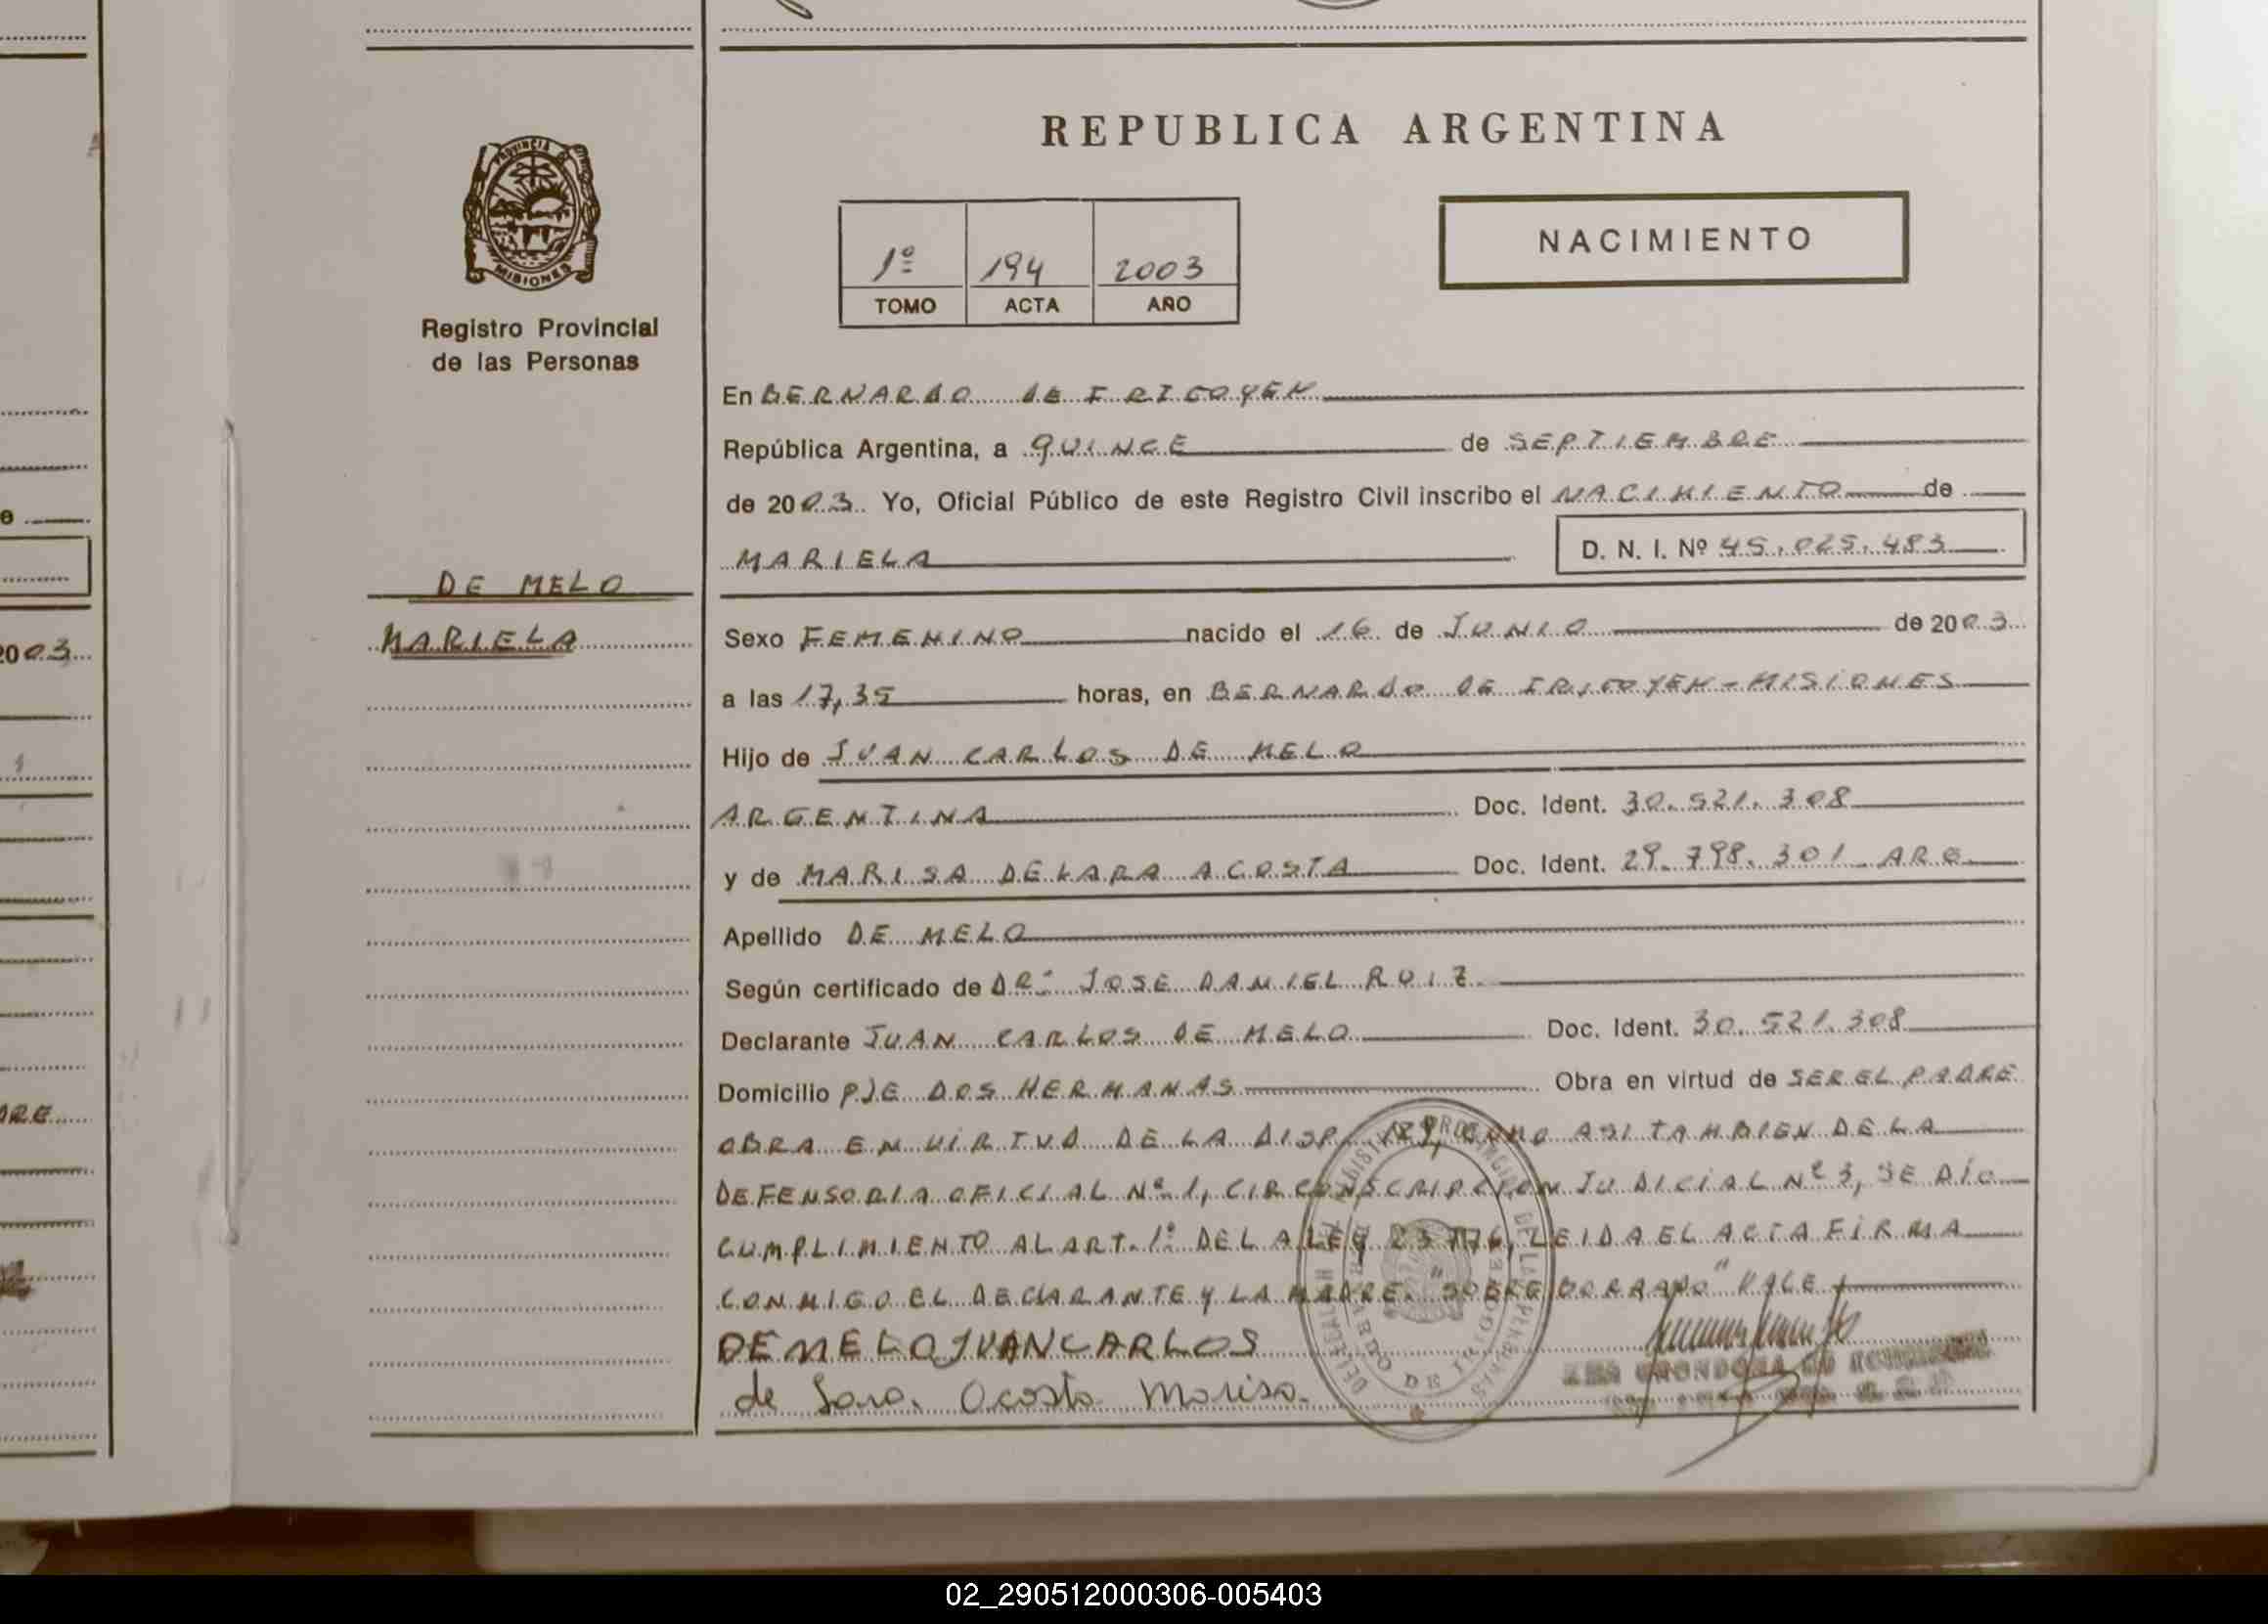 REPUBLICA ARGENTINA
PROVINCIA DE
MISIONES
Registro Provincial
de las Personas
1º 194 2003
TOMO ACTA AÑO
NACIMIENTO
En BERNARDO DE IRIGOYEN
República Argentina, a QUINCE de SEPTIEMBRE
de 2003. Yo, Oficial Público de este Registro Civil inscribo el NACIMIENTO de
MARIELA D. N. I. Nº 45.025.483
DE MELO
MARIELA
Sexo FEMENINO nacido el 16 de JUNIO de 2003
a las 17,35 horas, en BERNARDO DE IRIGOYEN - MISIONES
Hijo de JUAN CARLOS DE MELO
ARGENTINA Doc. Ident. 30.521.308
y de MARISA DE LARA ACOSTA Doc. Ident. 29.798.301 ARG
Apellido DE MELO
Según certificado de DR. JOSE DANIEL RUIZ
Declarante JUAN CARLOS DE MELO Doc. Ident. 30.521.308
Domicilio PJE DOS HERMANAS Obra en virtud de SER EL PADRE
OBRA EN VIRTUD DE LA DISP. COMO ASI TAMBIEN DE LA
DEFENSORIA OFICIAL Nº 1, CIRCONSCRIPCION JUDICIAL Nº 3, SE DIO
CUMPLIMIENTO AL ART. 1º DE LA LEY LEIDA EL ACTA FIRMA
CONMIGO EL DECLARANTE Y LA MADRE. "SOBRE BORRADO" VALE
DE MELO JUAN CARLOS
de Lara Acosta Marisa.
2003
02_290512000306-005403